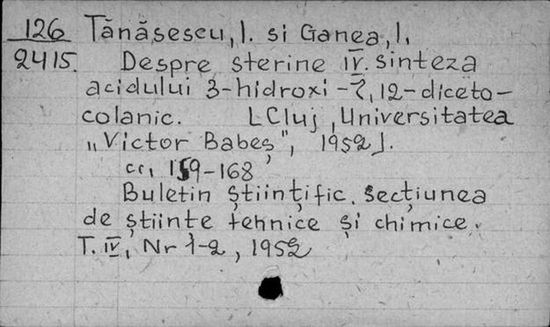 126 Tănăsescu, I. si Ganea, I.
2415. Despre sterine IV. sinteza
acidului 3-hidroxi-7,12-diceto-
colanic. [Cluj, Universitatea
„Victor Babeș", 1952].
cc, 159-168
Buletin Științific. Secțiunea
de științe tehnice și chimice.
T. IV, Nr 1-2, 1952